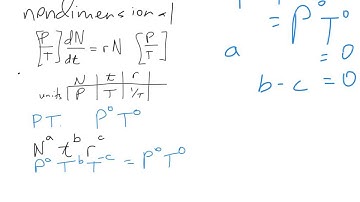 nondimensional
[P/T] dN/dt = rN [P/T]
N t r
units P T 1/T
P.T. P⁰T⁰
Nᵃ tᵇ rᶜ
P⁰ Tᵇ T⁻ᶜ = P⁰T⁰
= P⁰T⁰
a = 0
b - c = 0